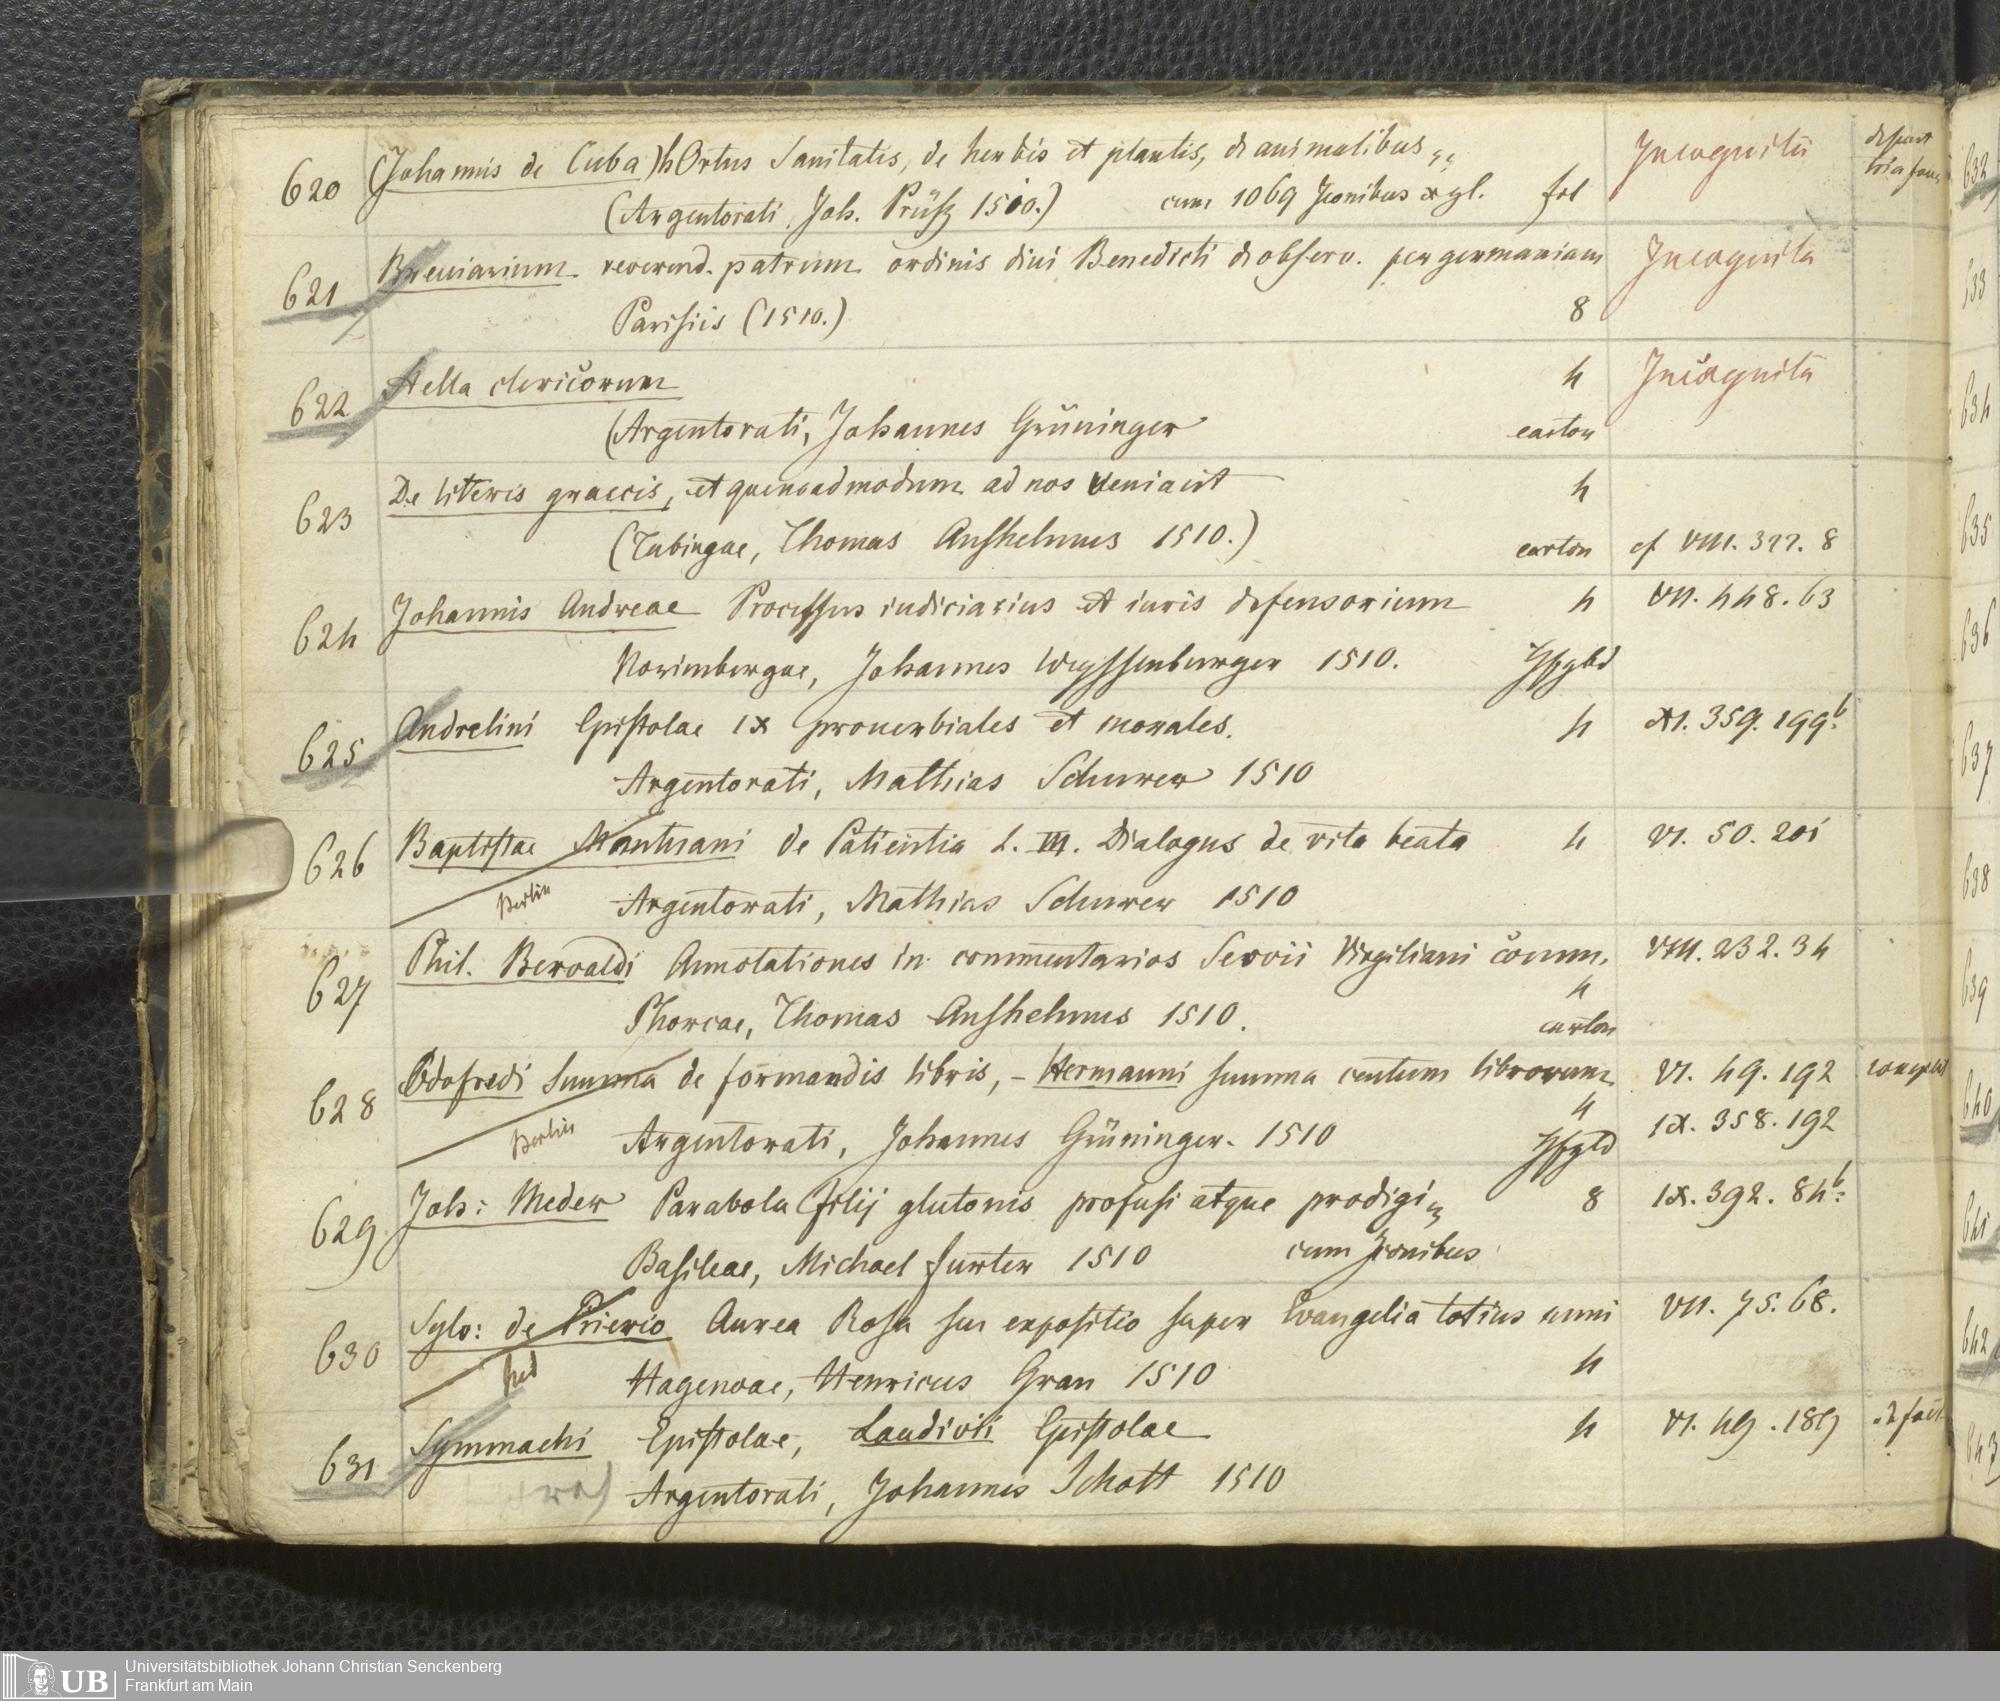 620 (Johannis de Cuba) hOrtus Sanitatis, de herbis et plantis, de animalibus Incognita
(Argentorati, Joh. Prüß 1510.) cum 1069 Iconibus xgl. fol
621 Breuiarium reverend. patrum ordinis diui Benedicti de observ. per germaniam Incognita
Parisiis (1510.) 8
622 Stella clericorum 4 Incognita
(Argentorati, Johannes Grüninger carton
623 De literis graecis, et quemadmodum ad nos veniant 4
(Tubingae, Thomas Anshelmus 1510.) carton cf VIII. 327. 8
624 Johannis Andreae Processus iudiciarius et iuris defensorium 4 VII. 448. 63
Norimbergae, Johannes Weyssenburger 1510.
625 Andrelini Epistolae IX prouerbiales et morales. 4 XI. 359. 199b.
Argentorati, Mathias Schurer 1510
626 Baptistae Mantuani de Patientia L. III. Dialogus de vita beata 4 VI. 50. 201
Berlin Argentorati, Mathias Schurer 1510
627 Phil. Beroaldi Annotationes in commentarios Servii Virgiliani comm. VIII. 232. 34
4
Phorcae, Thomas Anshelmus 1510. carton
628 Odofredi Summa de formandis libris, – Hermanni summa centum librorum VI. 49. 192
4
Berlin Argentorati, Johannes Grüninger. 1510 IX. 358. 192
629 Joh: Meder Parabola filij glutonis profusi atque prodigi 8 IX. 392. 84b.
Basileae, Michael furter 1510 cum Iconibus
630 Sylv: de Prierio Aurea Rosa seu expositio super Evangelia totius anni VII. 75. 68.
Hagenoae, Henricus Gran 1510 4
631 Symmachi Epistolae, Laudivii Epistolae 4 VI. 49. 189 defect.
Argentorati, Johannes Schott 1510
632
633
634
635
636
637
638
639
640
641
642
643
UB
Universitätsbibliothek Johann Christian Senckenberg
Frankfurt am Main